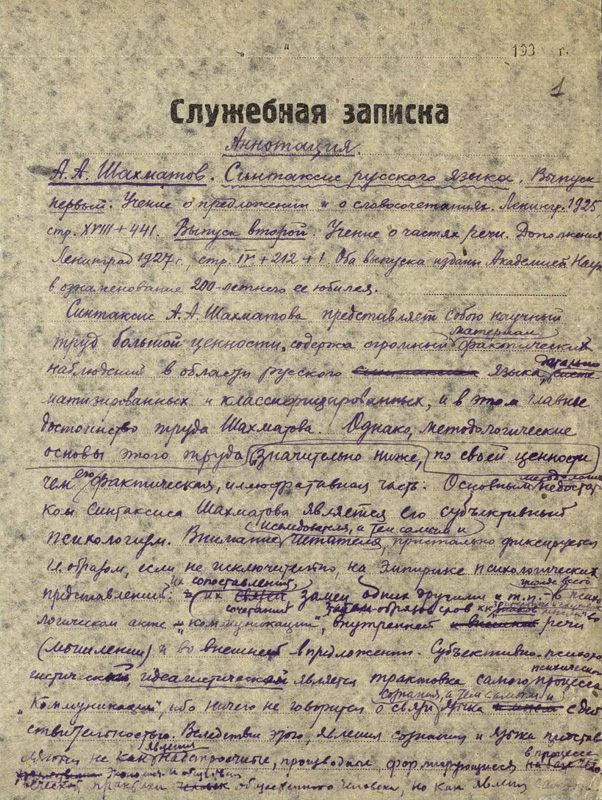 193 г.
1
Служебная записка
Аннотация.
А. А. Шахматов. Синтаксис русского языка. Выпуск
первый. Учение о предложении и о словосочетаниях. Ленингр. 1925
стр. XVIII + 441. Выпуск второй: Учение о частях речи. Дополнения
Ленинград 1927 г., стр. IV + 212 + 1. Оба выпуска изданы Академией Наук
в ознаменование 200-летнего ее юбилея.
Синтаксис А. А. Шахматова представляет собою научный
материал
труд большой ценности, содержа огромный фактических
наблюдений в области русского языка, детально систе
матизированных и классифицированных, и в этом главное
достоинство труда Шахматова. Однако, методологические
основы этого труда значительно ниже, по своей ценности
чем его фактическая, иллюстративная часть. Основным недостат
ком Синтаксиса Шахматова является его субъективный
исследования, а тем самым и
психологизм. Внимание читателя, пристально фиксируется
и. образом, если не исключительно, на эмпирике психологических
сопоставлений,
представлений: их замен одних другими и т. п. в психо
сочетаний
логическом акте "коммуникации", внутренней речи
(мышлении) и во внешней в предложении. Субъективно-психоло
гистической, идеалистической является трактовка самого процесса
сознания, а тем самым и
"Коммуникации", ибо ничего не говорится о связи языка с дей
ствительностью. Вследствие этого, явления сознания и языка представ
явления
ляются не как надстроечные, производные, формирующиеся в процессе
практики общественного человека, но как явления